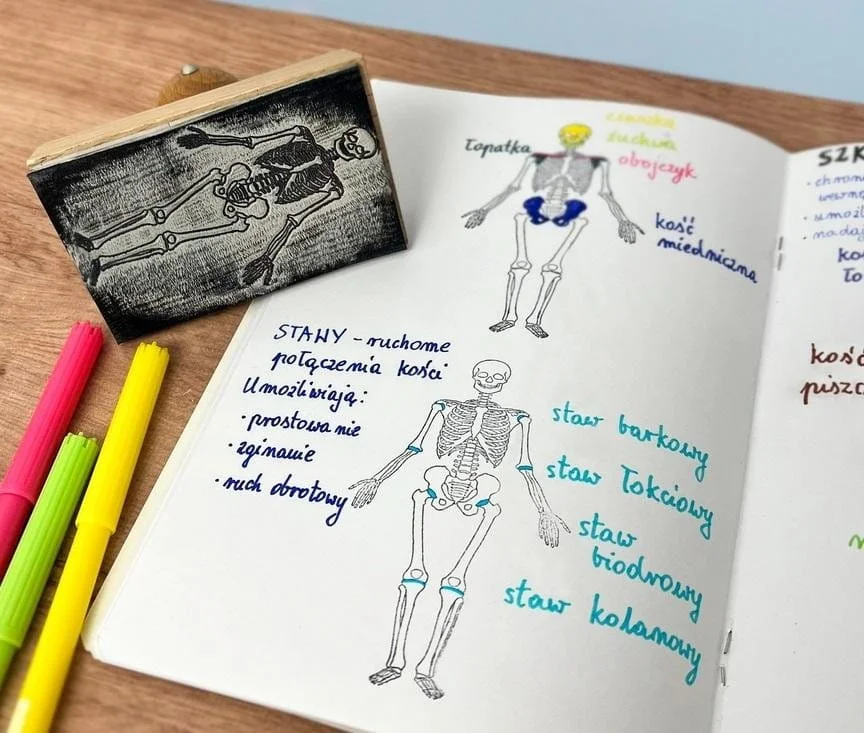 czaszka
żuchwa
łopatka
obojczyk
kość
miedniczna
STAWY - ruchome
połączenia kości
Umożliwiają:
• prostowanie
• zginanie
• ruch obrotowy
staw barkowy
staw łokciowy
staw
biodrowy
staw kolanowy
SZK
• chron
• umoż
• nadaj
kość